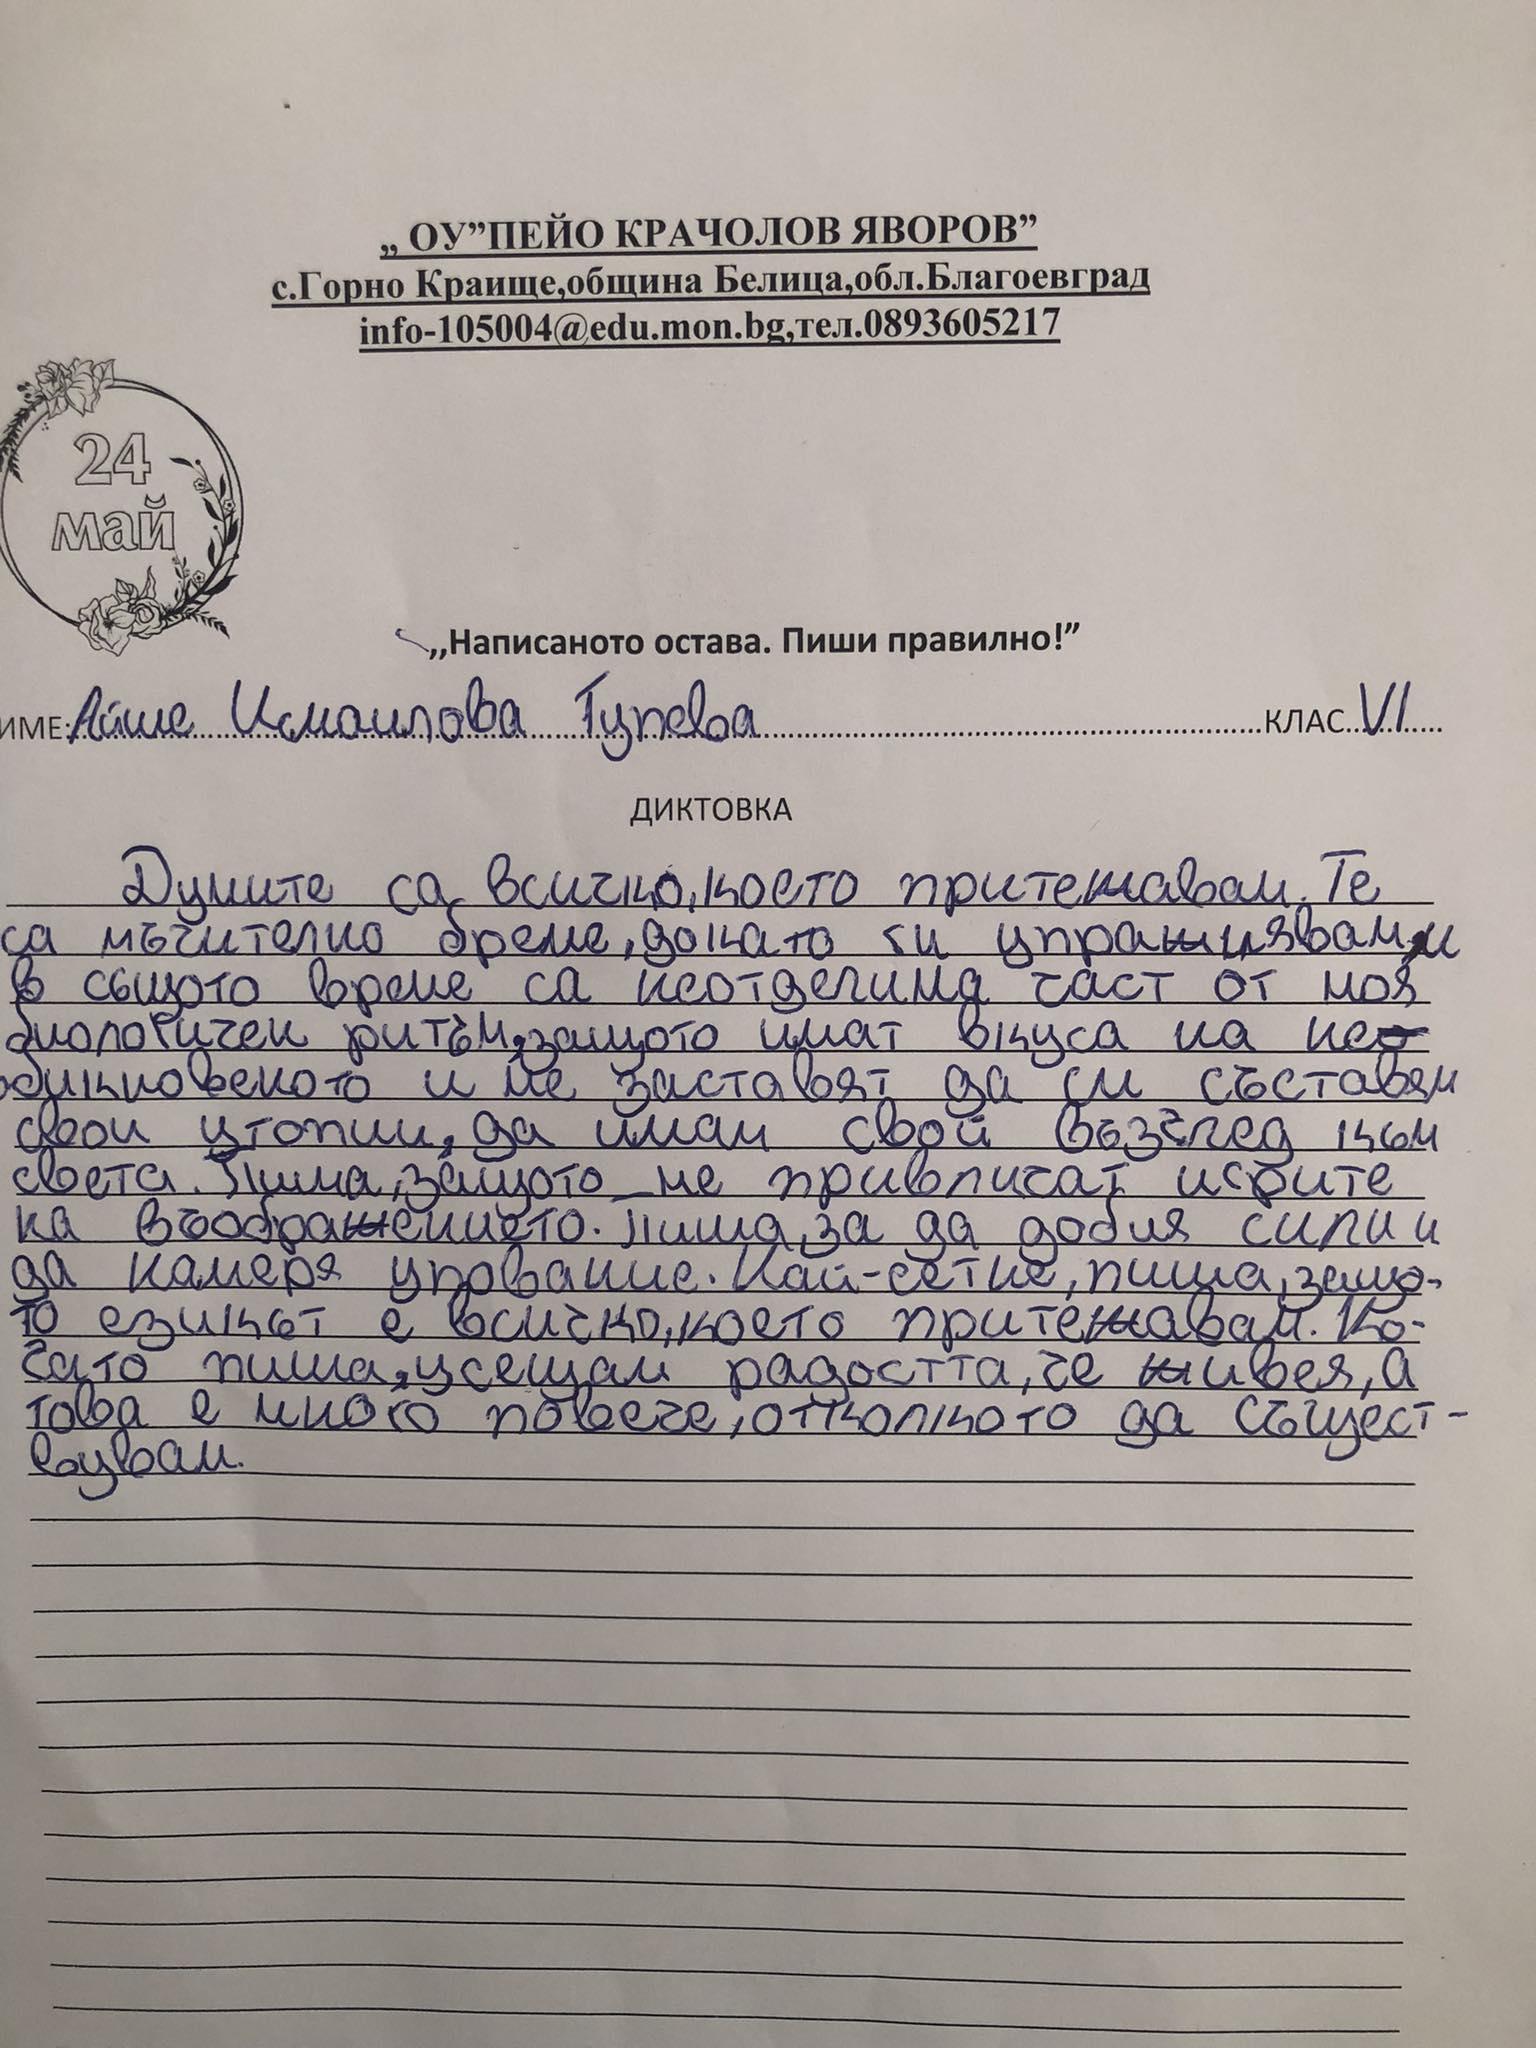 „ ОУ”ПЕЙО КРАЧОЛОВ ЯВОРОВ”
с.Горно Краище,община Белица,обл.Благоевград
info-105004@edu.mon.bg,тел.0893605217
24
май
,,Написаното остава. Пиши правилно!”
ИМЕ: Айше Исмаилова Гупева КЛАС VI
ДИКТОВКА
Думите са всичко, което притежавам. Те
са мъчително бреме, докато ги упражнявам, и
в същото време са неотделима част от моя
биологичен ритъм, защото имат вкуса на не-
обикновеното и ме заставят да си съставям
свои утопии, да имам свой възглед към
света. Пиша, защото ме привличат искрите
на въображението. Пиша, за да добия сили и
да намеря упование. Най-сетне, пиша, защо-
то езикът е всичко, което притежавам. Ко-
гато пиша, усещам радостта, че живея, а
това е много повече, отколкото да същест-
вувам.